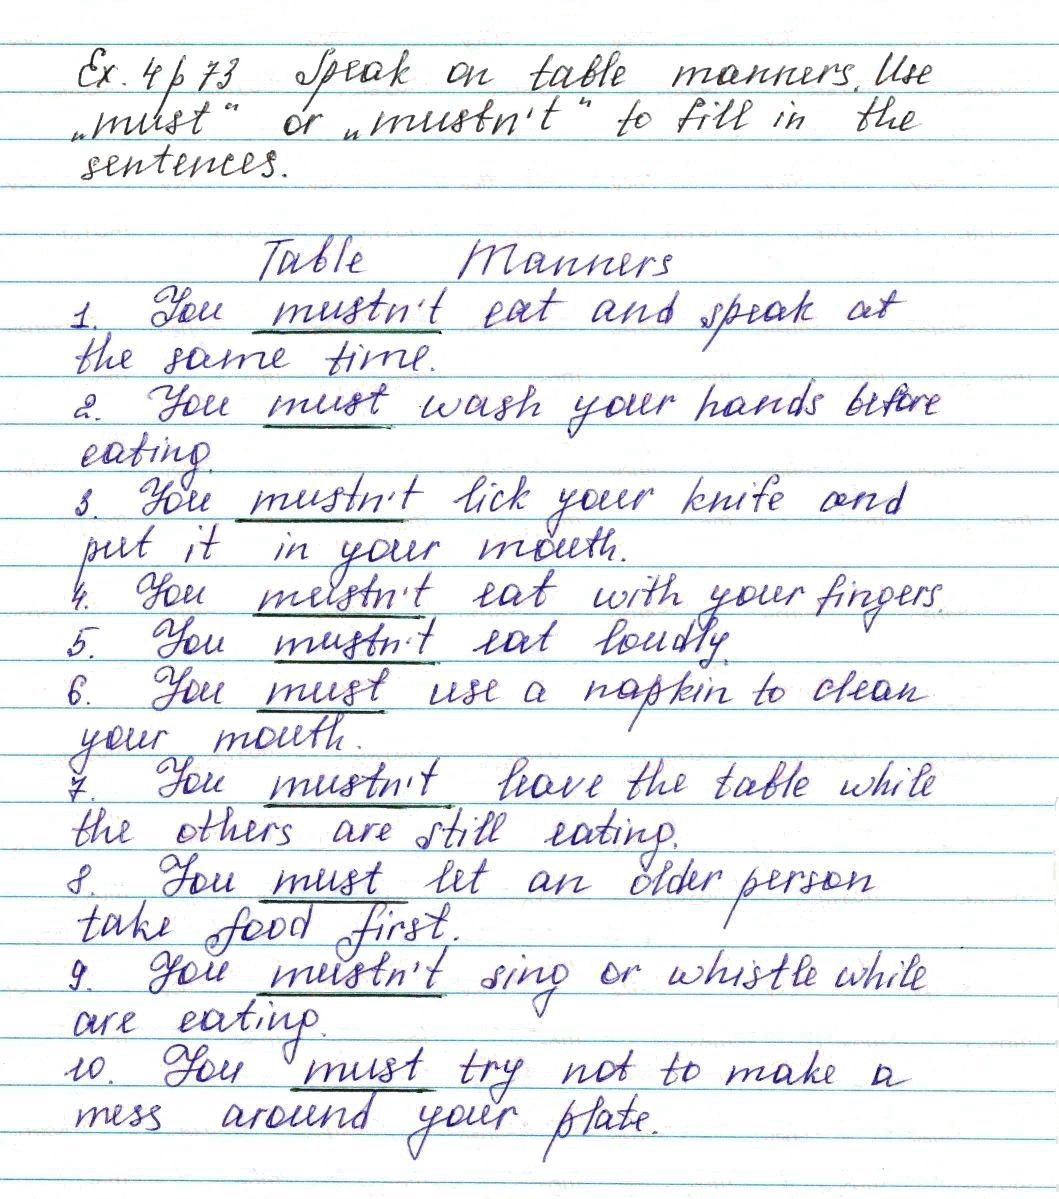 Ex. 4 p 73 Speak on table manners. Use
„must“ or „mustn't“ to fill in the
sentences.
Table Manners
1. You mustn't eat and speak at
the same time.
2. You must wash your hands before
eating.
3. You mustn't lick your knife and
put it in your mouth.
4. You mustn't eat with your fingers.
5. You mustn't eat loudly.
6. You must use a napkin to clean
your mouth.
7. You mustn't leave the table while
the others are still eating.
8. You must let an older person
take food first.
9. You mustn't sing or whistle while
are eating.
10. You must try not to make a
mess around your plate.